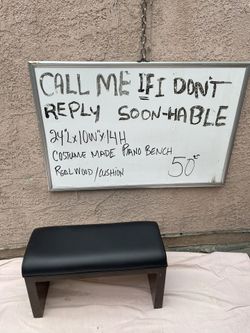 CALL ME IF I DON'T
REPLY SOON-HABLE
24"L x 10W" x 14H
COSTUME MADE PIANO BENCH
REAL WOOD/CUSHION 50